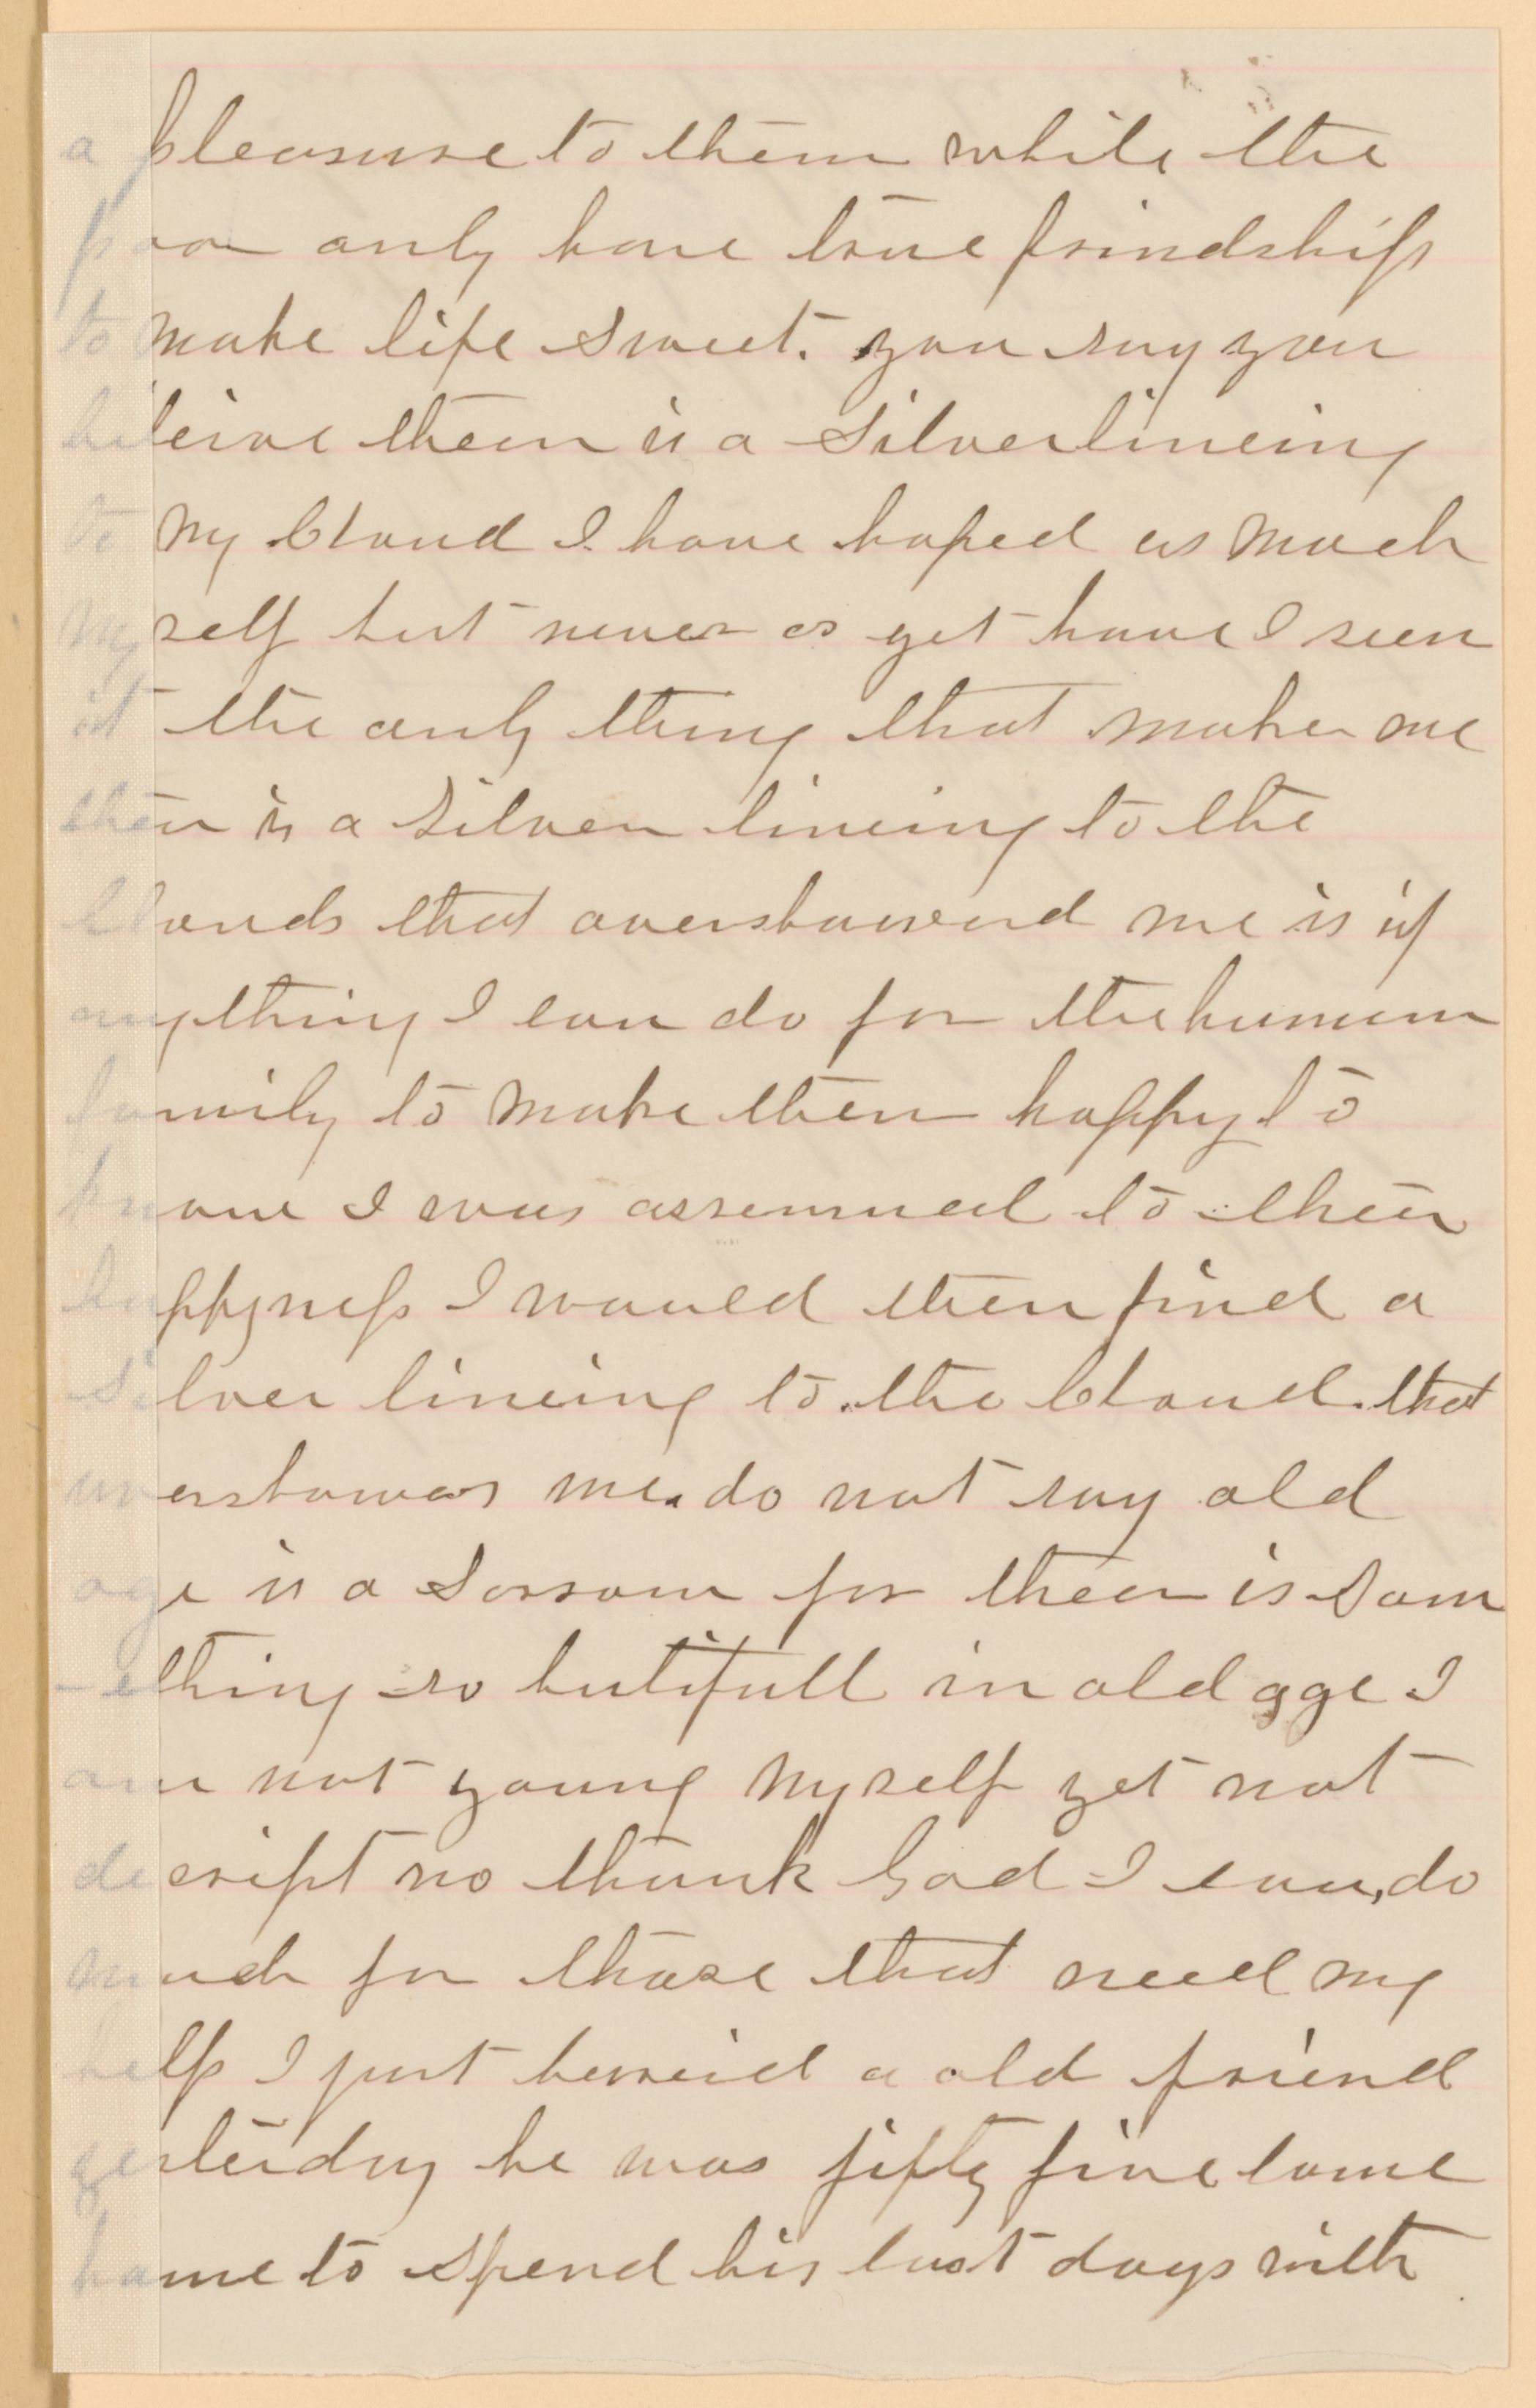 a pleasure to them while the
poor only have true frindship
to make life sweet. you say you
beleive theer is a Silverlineing
to my Cloud I have hoped as much
my self but never as yet have I seen
it the only thing that makes me
theer is a Silver lineing to the
Clouds that overshowerd me is if
anything I can do for the human
family to make them happy to
know I was assurred to their
happyness I would then find a
Silver lineing to the Cloud. that
overshowers me. do not say old
age is a Sorrow for theer is Som
-ething so butifull in old age I
am not young myself yet not
decript no thank God I can, do
much for those that need my
help I just burried a old friend
yesterday he was fifty five came
home to Spend his last days with